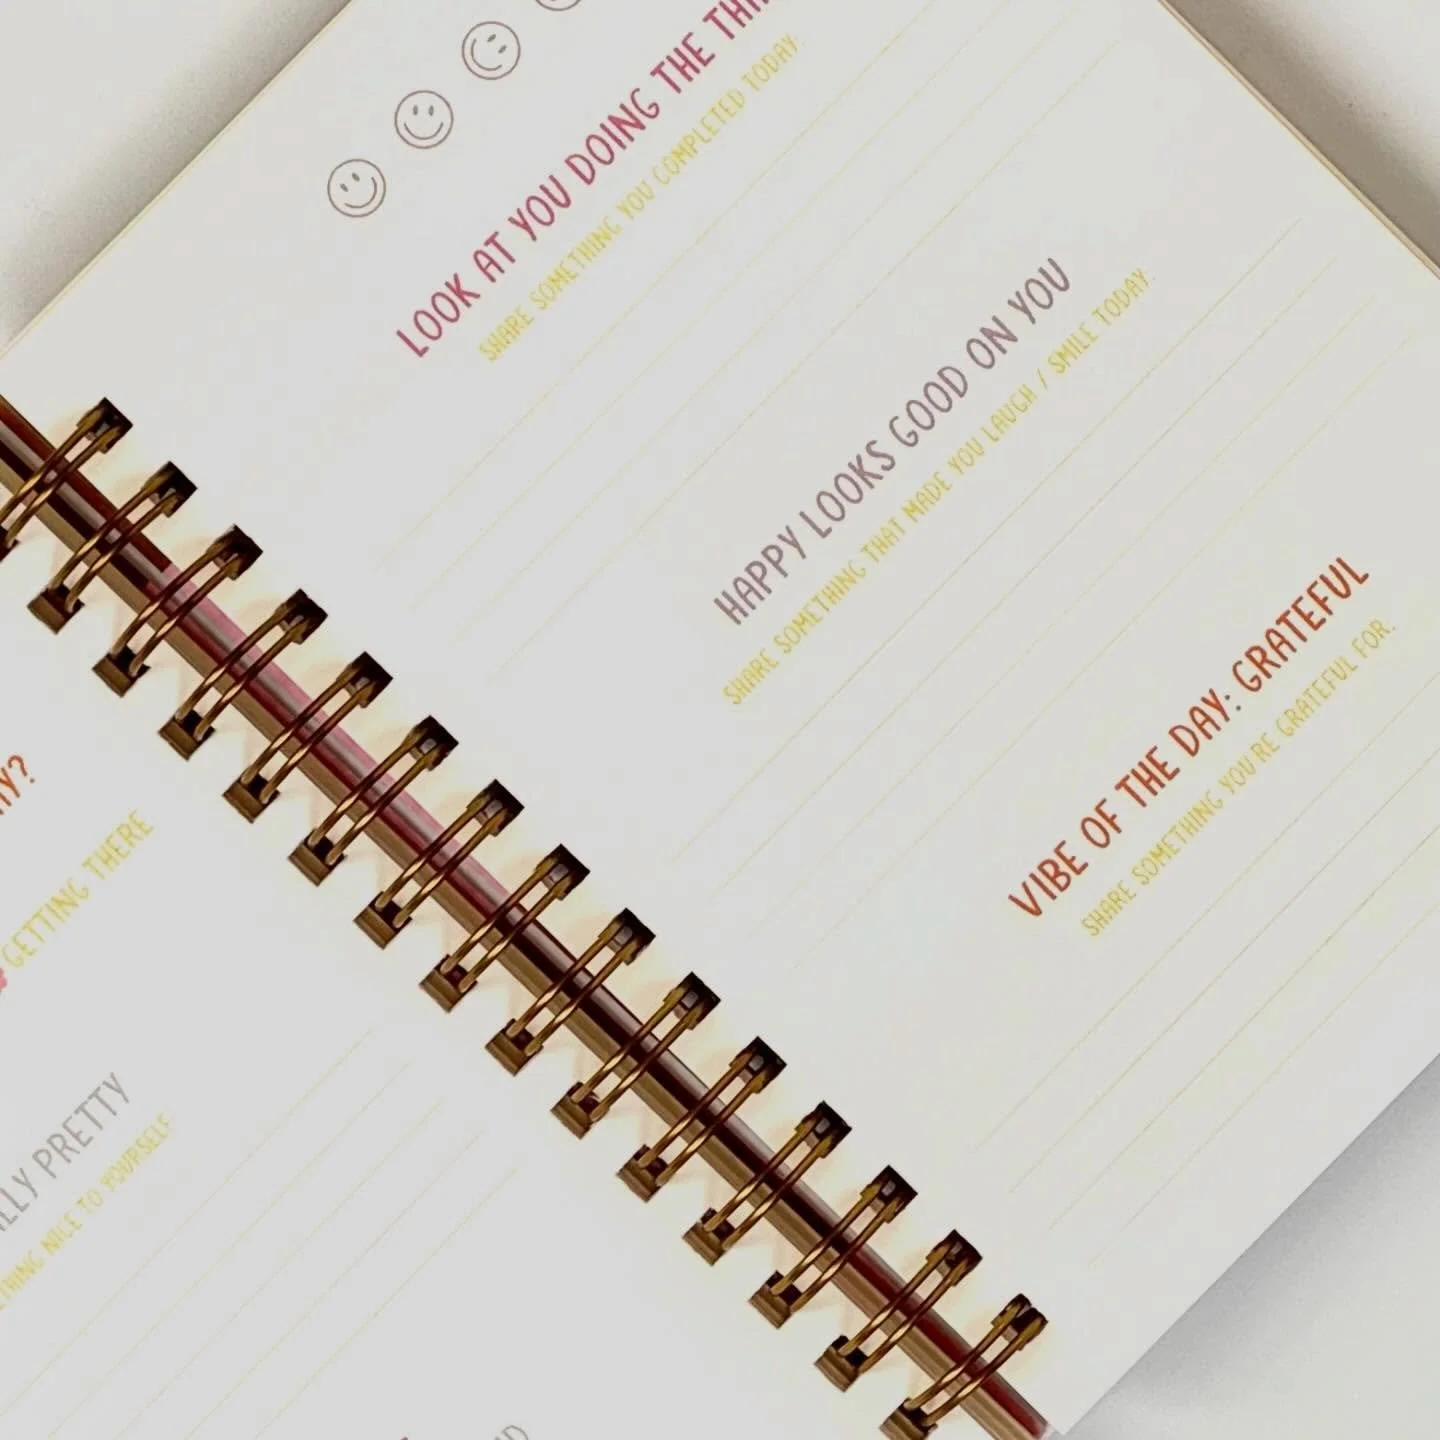 LOOK AT YOU DOING THE
SHARE SOMETHING YOU COMPLETED TODAY.
HAPPY LOOKS GOOD ON YOU
SHARE SOMETHING THAT MADE YOU LAUGH / SMILE TODAY.
VIBE OF THE DAY: GRATEFUL
SHARE SOMETHING YOU'RE GRATEFUL FOR.
GETTING THERE
PRETTY
NICE TO YOURSELF